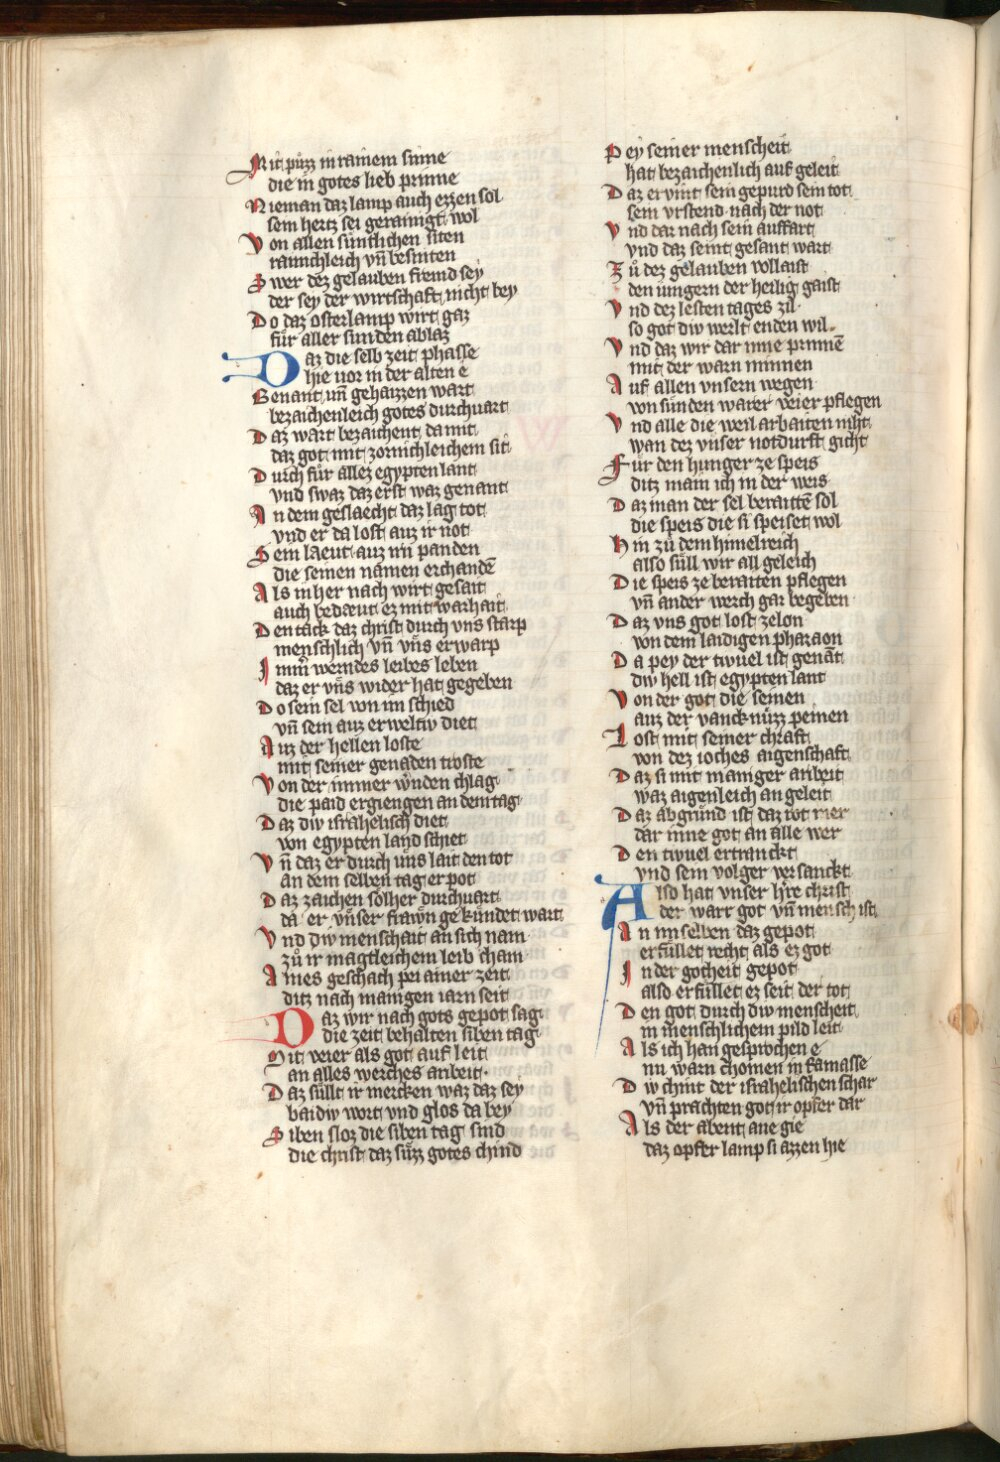 Mit puzz in rainem sinne
die in gotes lieb prinne
Nieman daz lamp auch ezzen sol
sein hertz sei gerainigt wol
Von allen süntlichen siten
raunchleich vn̄ besniten
Swer dez gelauben fremd sey
der sey der wirtschaft nicht bey
Do daz osterlamp wirt gaz
für aller sunden ablaz
Daz die selb zeit phasse
hie vor in der alten e
Genant vn̄ gehaizzen wart
bezaichenleich gotes durchuart
Daz wart bezaichent da mit
daz got mit zornichleichem sit
Durch für allez egypten lant
vnd swaz daz erst waz genant
In dem geslaecht daz lag tot
vnd er da lost auz ir not
Sein laeut auz irn panden
die seinen namen erchandē
Als in her nach wirt gesait
auch bedaeut ez mit warhait
Den tack daz christ durch vns starp
menschlich vn̄ vns erwarp
Immer werndes leibes leben
daz er vns wider hat gegeben
Do sein sel von im schied
vn̄ sein auz erweltiv diet
Auz der hellen loste
mit seiner genaden troste
Von der immer wūnden chlag
die paid ergiengen an dem tag
Daz div israhelisch diet
von egypten land schiet
Vn̄ daz er durch uns lait den tot
an dem selben tag er pot
Daz zaichen solher durchuart
da er vnser frawn gekündet wart
Vnd div menschait an sich nam
zů ir magtleichem leib cham
Aines geschach pei ainer zeit
ditz nach manigen iarn seit
Daz wir nach gots gepot sag
die zeit behalten siben tag
Mit veier als got auf leit
an alles werches aribeit
Daz süllt ir mercken waz daz sey
baidiv wort vnd glos da bey
Siben sloz die siben tag sind
die christ daz süzz gotes chind
Pey seiner menscheit
hat bezaichenlich auf geleit
Daz er vint sein gepurd sein tot
sein vrstend nach der not
Vnd dar nach sein auffart
vnd daz seint gesant wart
Zů dez gelauben vollaist
den iungern der heilig gaist
Vnd dez lesten tages zil
so got div werlt enden wil
Vnd daz wir dar inne prinnē
mit der warn minnen
Auf allen vnsern wegen
von sünden warer veier pflegen
Vnd alle die weil arbaiten niht
wan dez vnser notdurft gicht
Für den hunger ze speis
ditz main ich in der weis
Daz man der sel beraittē sol
die speis die si speiset wol
Hin zů dem himelreich
also süll wir all geleich
Die speis ze beraiten pflegen
vn̄ ander werch gar begeben
Daz vns got lost zelon
von dem laidigen pharaon
Da pey der tivuel ist genāt
div hell ist egypten lant
Von der got die seinen
auz der vancknüzz peinen
Lost mit seiner chraft
von dez ioches aigenschaft
Daz si mit maniger aribeit
waz aigenleich an geleit
Daz abgründ ist daz rot mer
dar inne got an alle wer
Den tivuel ertranckt
vnd sein volger versanckt
Also hat vnser hr̄e christ
der warr got vn̄ mensch ist
An im selben daz gepot
erfüllet recht als ez got
In der gotheit gepot
also erfüllet ez seit der tot
Den got durch div menscheit
in menschlichem pild leit
Als ich han gesprochen e
nu warn chomen in Ramasse
Div chint der israhelischen schar
vn̄ prachten got ir opfer dar
Als der abent ane gie
daz opfer lamp si azzen hie